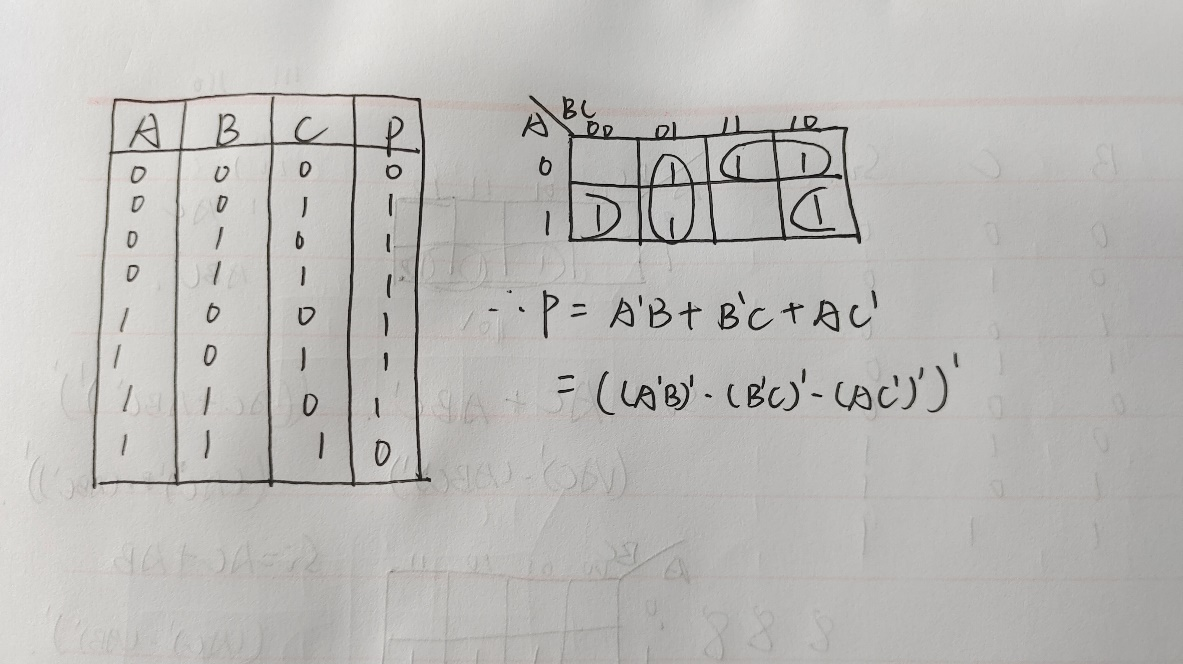 A B C P
0 0 0 0
0 0 1 1
0 1 0 1
0 1 1 1
1 0 0 1
1 0 1 1
1 1 0 1
1 1 1 0
A BC
00 01 11 10
0 1 1 1
1 1 1 1
∴ P = A'B + B'C + AC'
= ((A'B)' · (B'C)' · (AC')')'